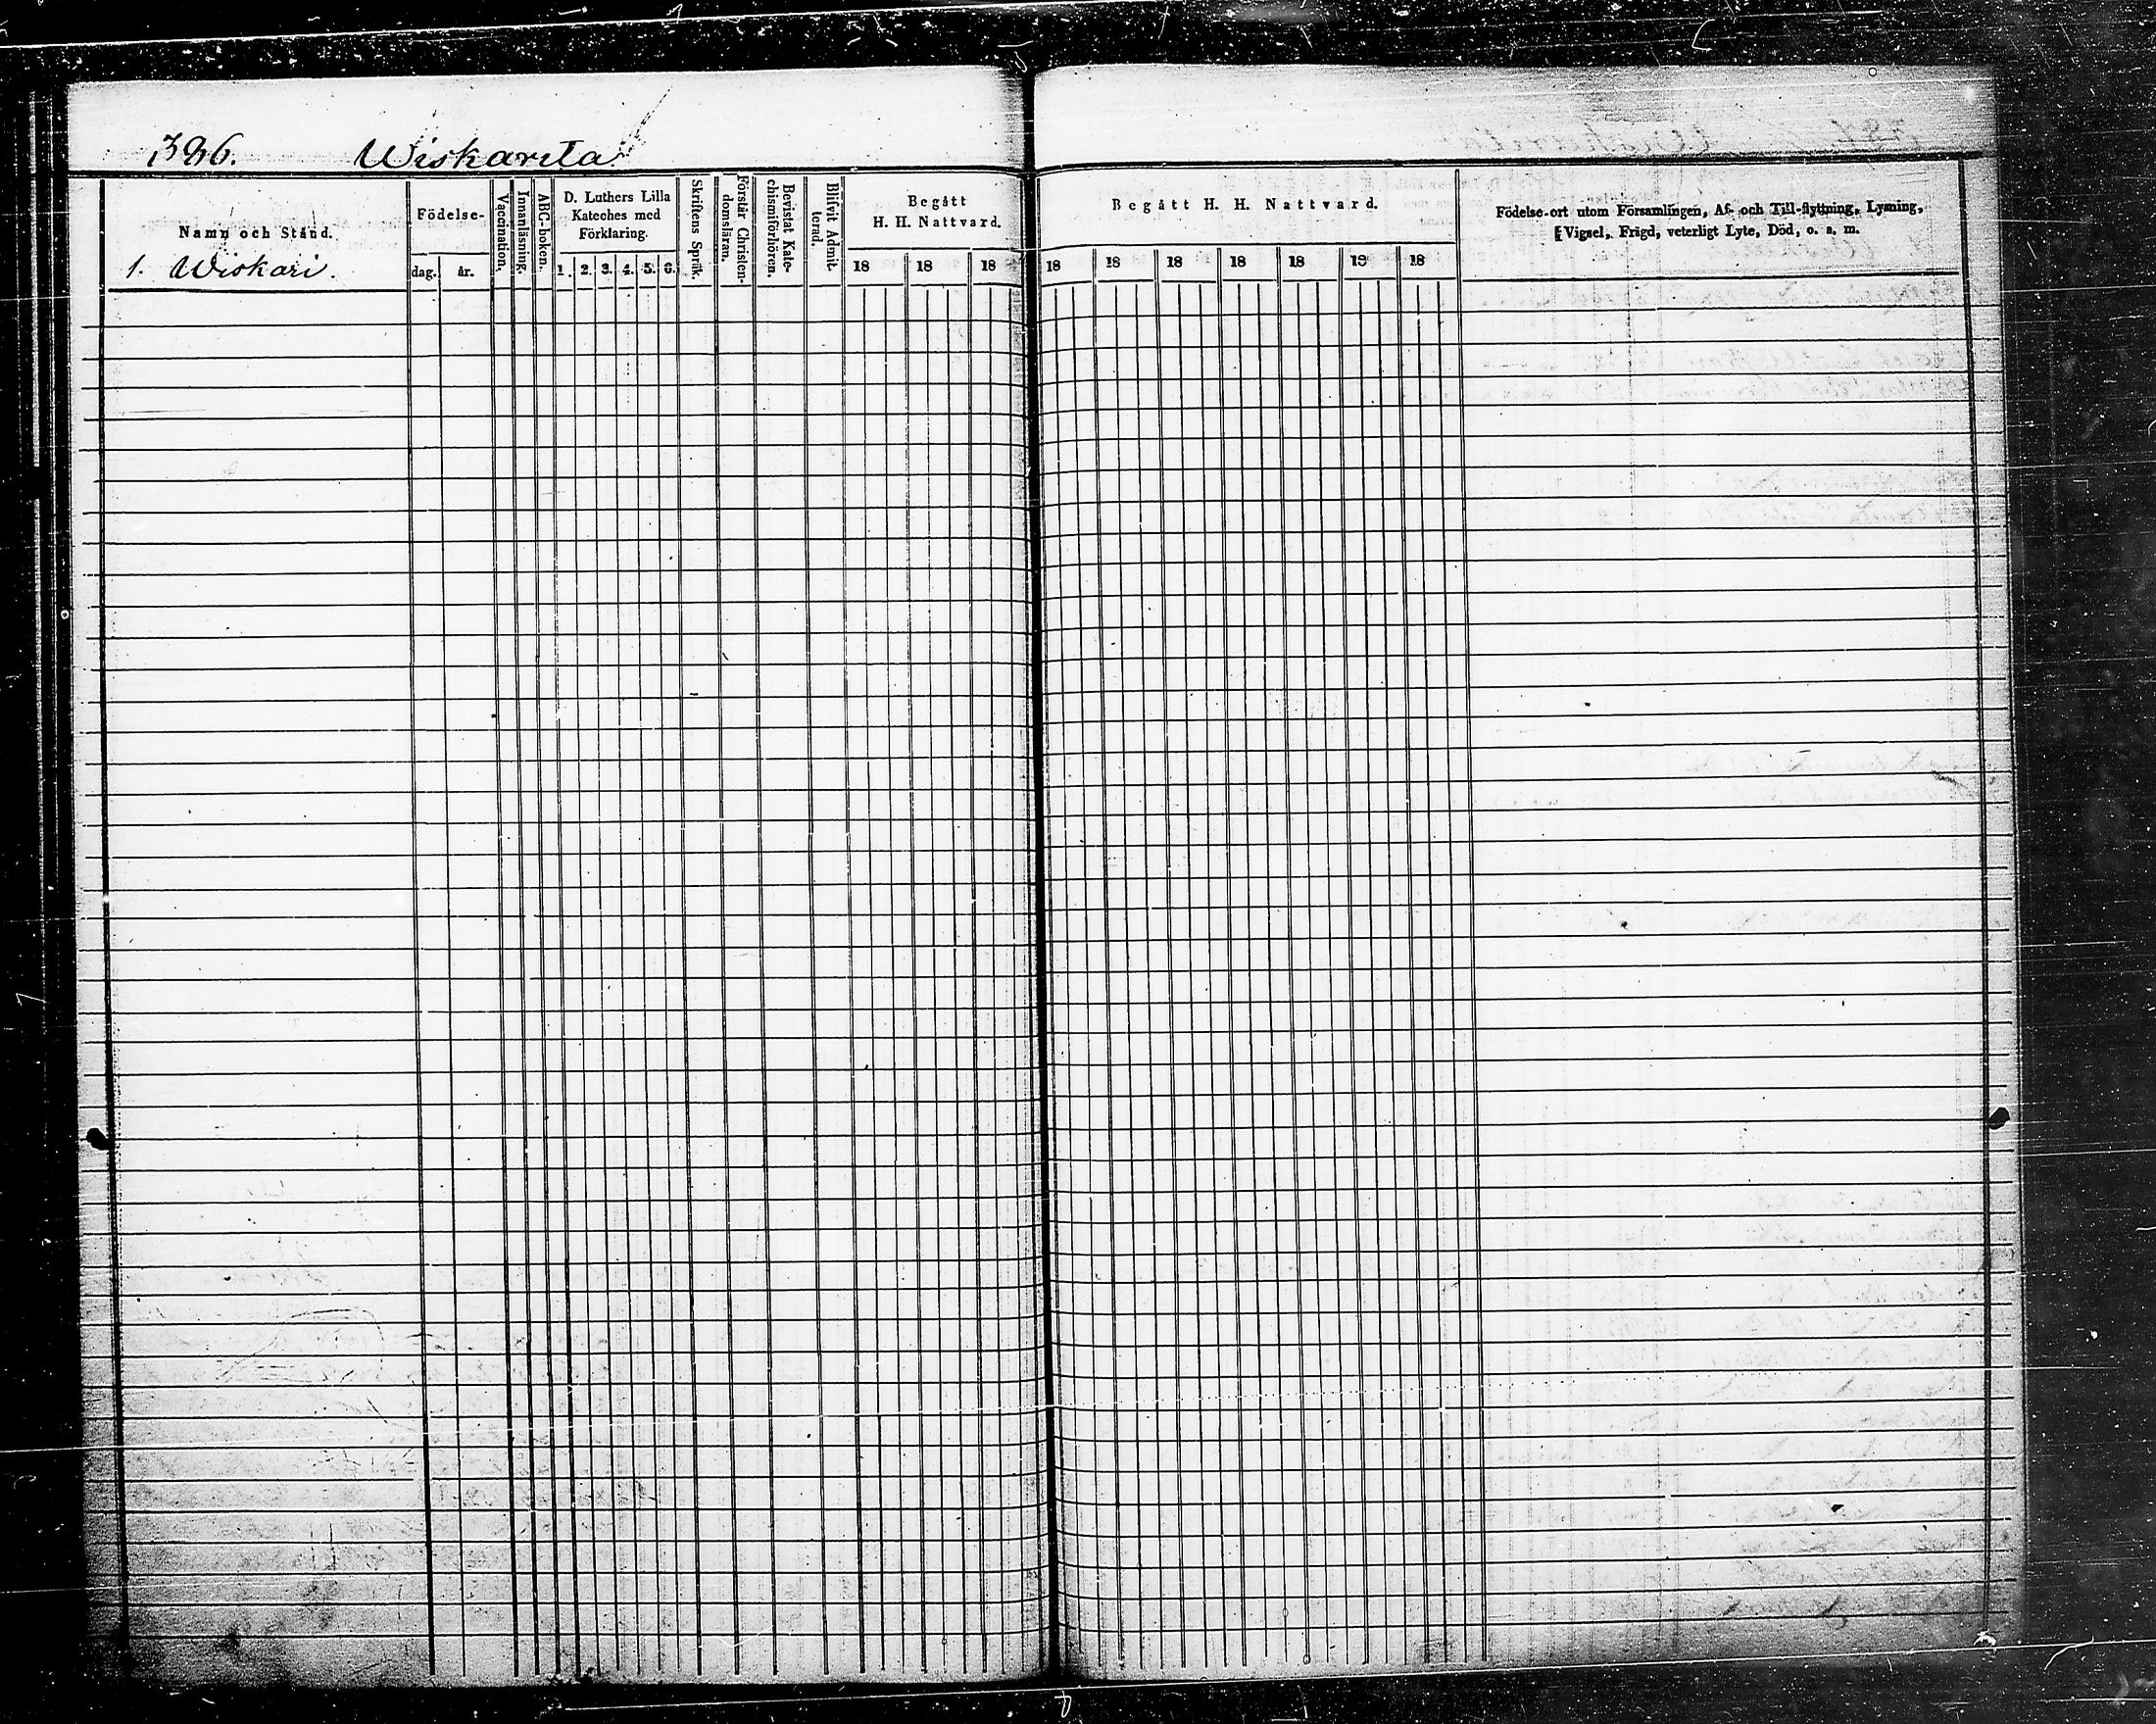 386. Wiskarila
Namn och Stånd.
1. Wiskari.
Födelse-
dag. år.
Vaccination.
Innanläsning.
ABC-boken.
D. Luthers Lilla
Kateches med
Förklaring.
1. 2. 3. 4. 5. 6.
Skriftens Språk.
Förstår Christen-
domsläran.
Bevistat Kate-
chismiförhören.
Blifvit Admit-
terad.
Begått
H. H. Nattvard.
18 18 18
Begått H. H. Nattvard.
18 18 18 18 18 18 18
Födelse-ort utom Församlingen, Af- och Till-flyttning, Lysning,
Vigsel, Frägd, veterligt Lyte, Död, o. s. m.